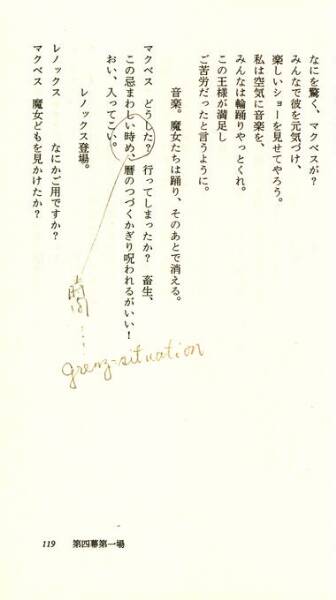 なにを驚く、マクベスが？
みんなで彼を元気づけ、
楽しいショーを見せてやろう。
私は空気に音楽を、
みんなは輪踊りやっとくれ。
この王様が満足し
ご苦労だったと言うように。
音楽。魔女たちは踊り、そのあとで消える。
マクベス　どうした？　行ってしまったか？　畜生、
この忌まわしい時め、暦のつづくかぎり呪われるがいい！
おい、入ってこい。
レノックス登場。
レノックス　なにかご用ですか？
マクベス　魔女どもを見かけたか？
時間…
grenz-situation
119　第四幕第一場